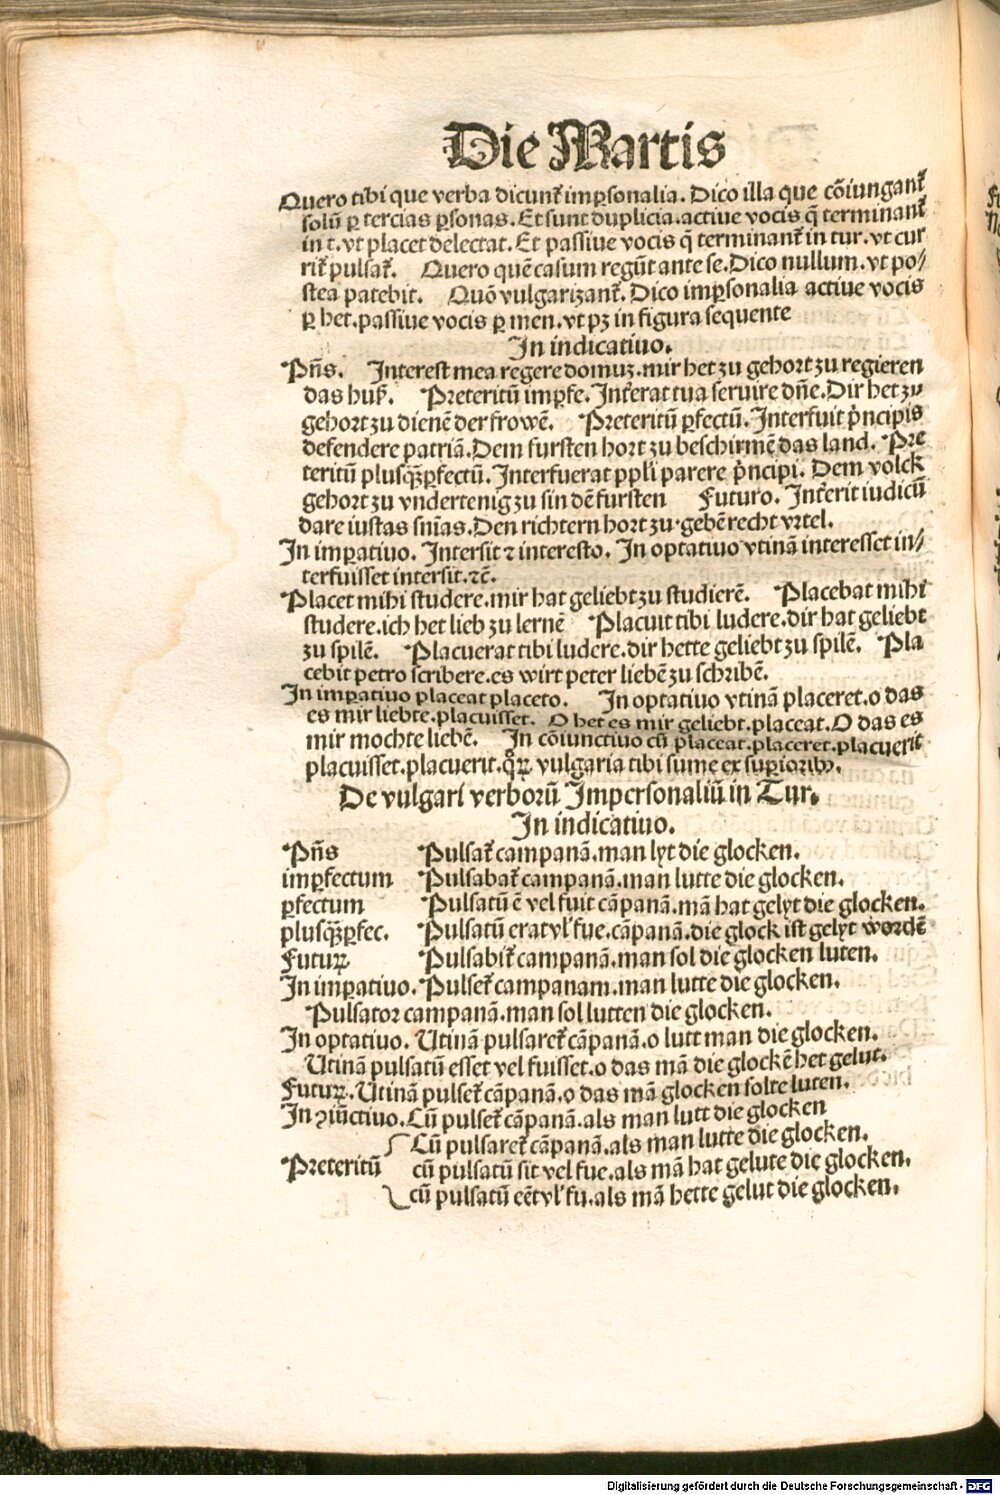 Die Martis
Quero tibi que verba dicunt᷑ imꝑsonalia. Dico illa que cõiungant᷑
solũ ꝑ tercias ꝑsonas. Et sunt duplicia. actiue vocis q̃ terminant᷑
in t. vt placet delectat. Et passiue vocis q̃ terminant᷑ in tur. vt cur
rit᷑ pulsat᷑. Quero quẽ casum regũt ante se. Dico nullum. vt po/
stea patebit. Quõ vulgarizant᷑. Dico imꝑsonalia actiue vocis
ꝑ het. passiue vocis ꝑ men. vt pꝫ in figura sequente
In indicatiuo.
Pñs. Interest mea regere domuꝫ. mir het zu gehort zu regieren
das huß. Preteritũ imꝑfe. Int᷑erat tua seruire dñe. Dir het zu
gehort zu dienẽ der frowẽ. Preteritũ ꝑfectũ. Interfuit p̃ncipis
defendere patriã. Dem fursten hort zu beschirmẽ das land. Pre
teritũ plusq̃ꝫꝑfectũ. Interfuerat ppl̃i parere p̃ncipi. Dem volck
gehort zu vndertenig zu sin dẽ fursten Futuro. Int᷑erit iudicũ
dare iustas sñias. Den richtern hort zu gebẽ recht vrtel.
In imꝑatiuo. Intersit ⁊ interesto. In optatiuo vtinã interesset in/
terfuisset intersit. ⁊c̃.
Placet mihi studere. mir hat geliebt zu studierẽ. Placebat mihi
studere. ich het lieb zu lernẽ Placuit tibi ludere. dir hat geliebt
zu spilẽ. Placuerat tibi ludere. dir hette geliebt zu spilẽ. Pla
cebit petro scribere. es wirt peter liebẽ zu schribẽ.
In imꝑatiuo placeat placeto. In optatiuo vtinã placeret. o das
es mir liebte. placuisset. O het es mir geliebt. placeat. O das es
mir mochte liebẽ. In cõiunctiuo cũ placeat. placeret. placuerit
placuisset. placuerit. q̃ꝝ vulgaria tibi sume ex suꝑioribꝰ.
De vulgari verborũ Impersonaliũ in Tur.
In indicatiuo.
Pñs Pulsat᷑ campanã. man lyt die glocken.
imꝑfectum Pulsabat᷑ campanã. man lutte die glocken.
ꝑfectum Pulsatũ ẽ vel fuit cãpanã. mã hat gelyt die glocken.
plusq̃ꝫꝑfec. Pulsatũ erat vl̕ fue. cãpanã. die glock ist gelyt wordẽ
Futuꝝ Pulsabit᷑ campanã. man sol die glocken luten.
In imꝑatiuo. Pulset᷑ campanam. man lutte die glocken.
Pulsator campanã. man sol lutten die glocken.
In optatiuo. Utinã pulsaret᷑ cãpanã. o lutt man die glocken.
Utinã pulsatũ esset vel fuisset. o das mã die glockẽ het gelut.
Futuꝝ. Utinã pulset᷑ cãpanã. o das mã glocken solte luten.
In ꝯiũctiuo. Cũ pulset᷑ cãpanã. als man lutt die glocken
Cũ pulsaret᷑ cãpanã. als man lutte die glocken.
Preteritũ cũ pulsatũ sit vel fue. als mã hat gelute die glocken.
cũ pulsatũ eẽt vl̕ fu. als mã hette gelut die glocken.
Digitalisierung gefördert durch die Deutsche Forschungsgemeinschaft - DFG